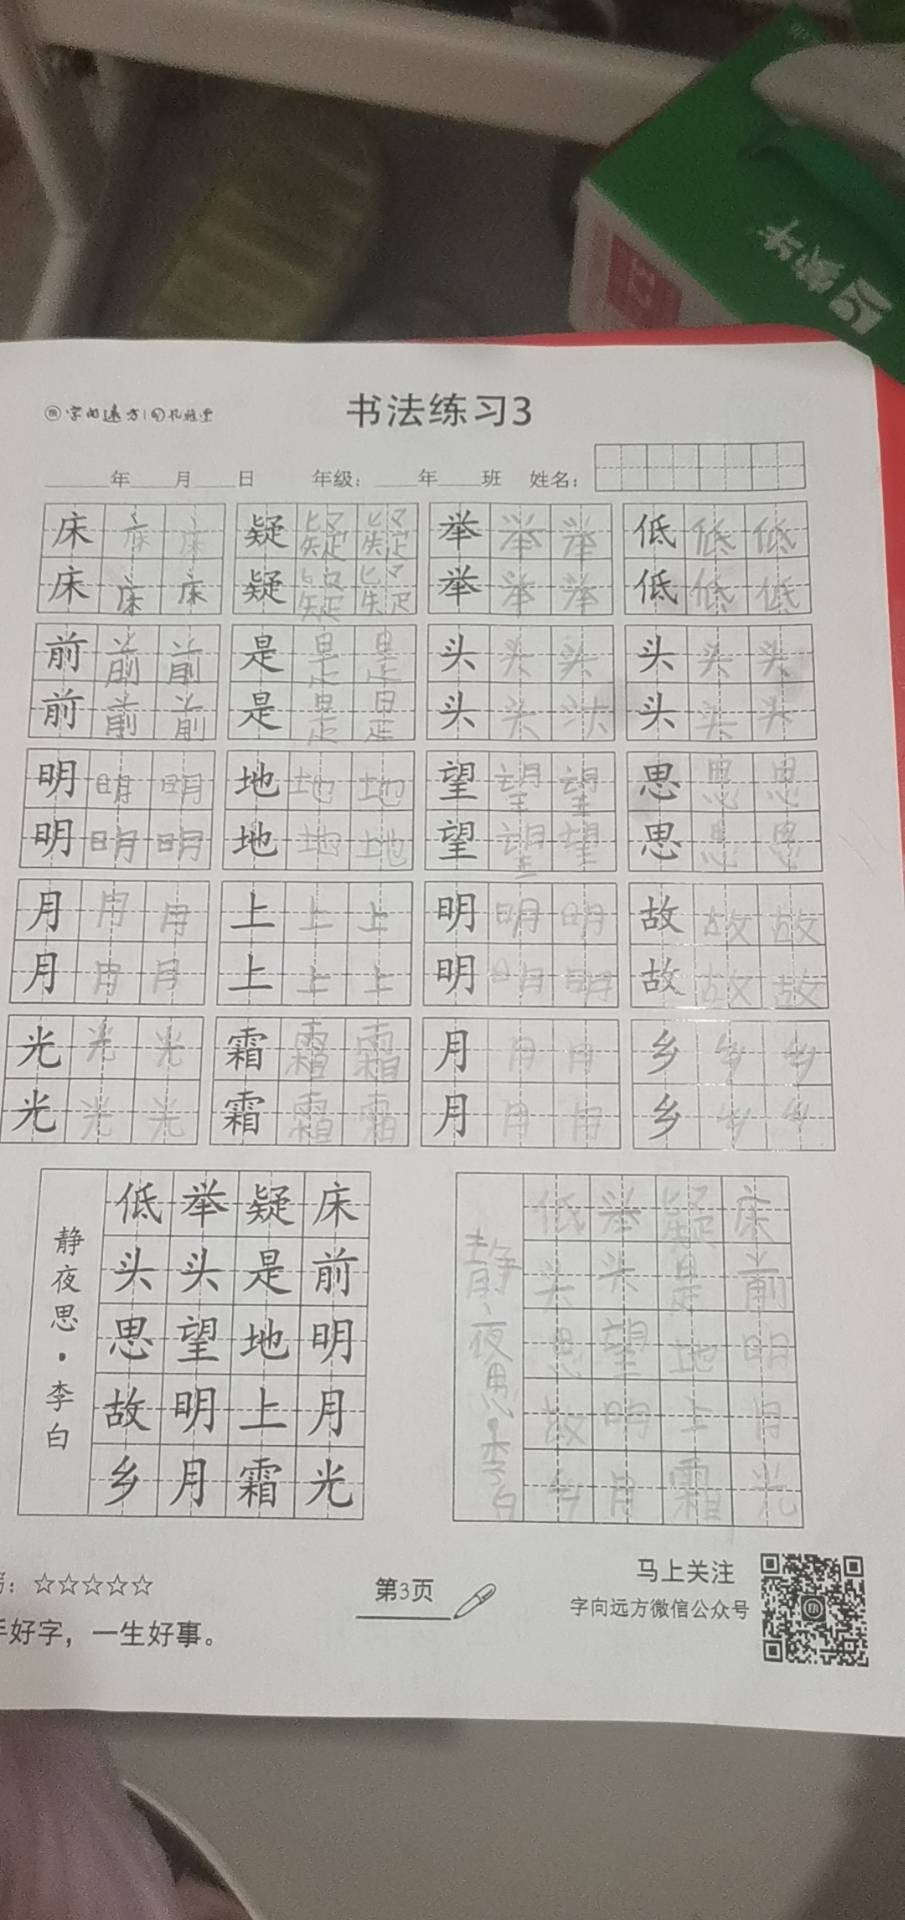 字向远方
书法练习3
____年____月____日 年级：____年____班 姓名：
床 床 床 疑 疑 疑 举 举 举 低 低 低
床 床 床 疑 疑 疑 举 举 举 低 低 低
前 前 前 是 是 是 头 头 头 头 头 头
前 前 前 是 是 是 头 头 头 头 头 头
明 明 明 地 地 地 望 望 望 思 思 思
明 明 明 地 地 地 望 望 望 思 思 思
月 月 月 上 上 上 明 明 明 故 故 故
月 月 月 上 上 上 明 明 明 故 故 故
光 光 光 霜 霜 霜 月 月 月 乡 乡 乡
光 光 光 霜 霜 霜 月 月 月 乡 乡 乡
床前明月光
疑是地上霜
举头望明月
低头思故乡
静夜思·李白
床前明月光
疑是地上霜
举头望明月
低头思故乡
静夜思·李白
：☆☆☆☆☆
手好字，一生好事。
第3页
马上关注
字向远方微信公众号